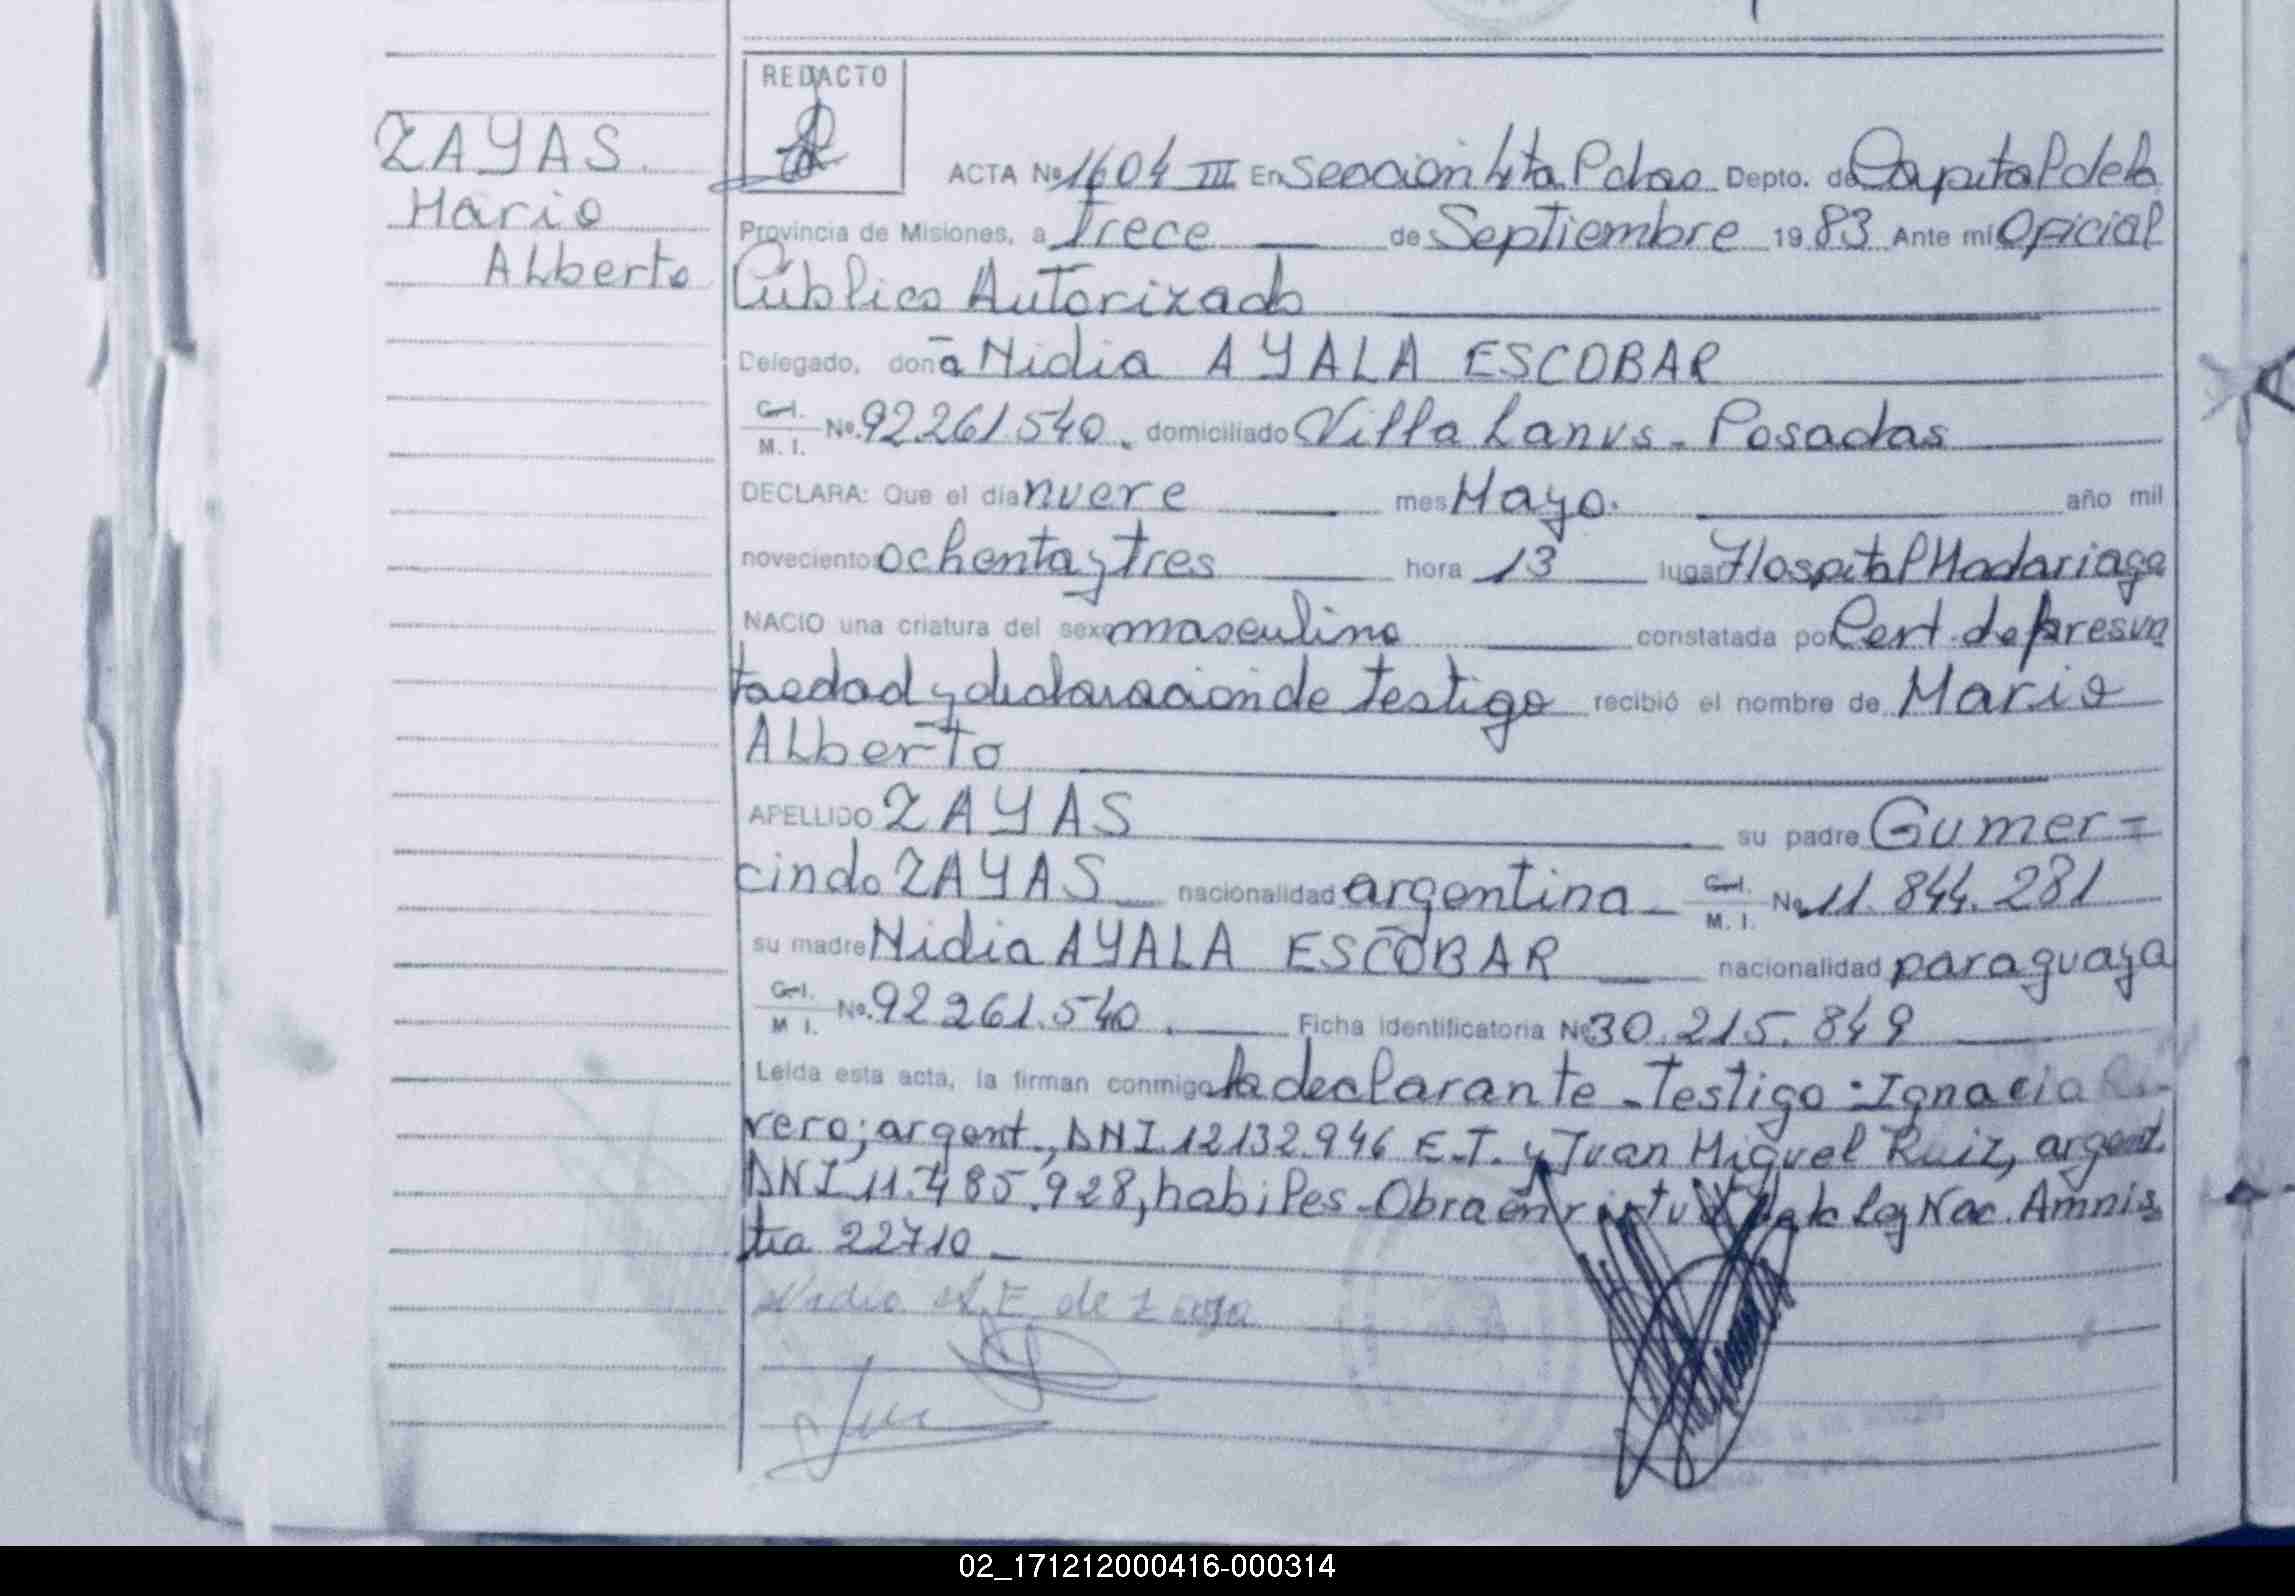 REDACTO
ZAYAS.
Mario
Alberto
ACTA Nº 1604 III En Sección 4ta Pdas Depto. de Capital de la
Provincia de Misiones, a trece de Septiembre 19 83 Ante mi Oficial
Público Autorizado
Delegado, doña Nidia AYALA ESCOBAR
C. I.
M. I. Nº. 92.261.540. domiciliado Villa Lanus - Posadas
DECLARA: Que el día nueve mes Mayo. año mil
novecientos ochenta y tres hora 13 lugar Hospital Madariaga
NACIO una criatura del sexo masculino constatada por Cert. de presun
ta edad y declaración de testigo recibió el nombre de Mario
Alberto
APELLIDO ZAYAS su padre Gumer=
cindo ZAYAS nacionalidad argentina C. I.
M. I. Nº 11.844.281
su madre Nidia AYALA ESCOBAR nacionalidad paraguaya
C. I.
M I. Nº. 92 261.540. Ficha Identificatoria Nº 30.215.849
Leída esta acta, la firman conmigo la declarante - Testigo: Ignacia Ri-
vero; argent., DNI.12132.946 E.T. y Juan Miguel Ruiz, argent.
DNI 11.485.928, habiles - Obra en virtud de la Ley Nac. Amnis
tia 22710
A. E de Zaya
02_171212000416-000314